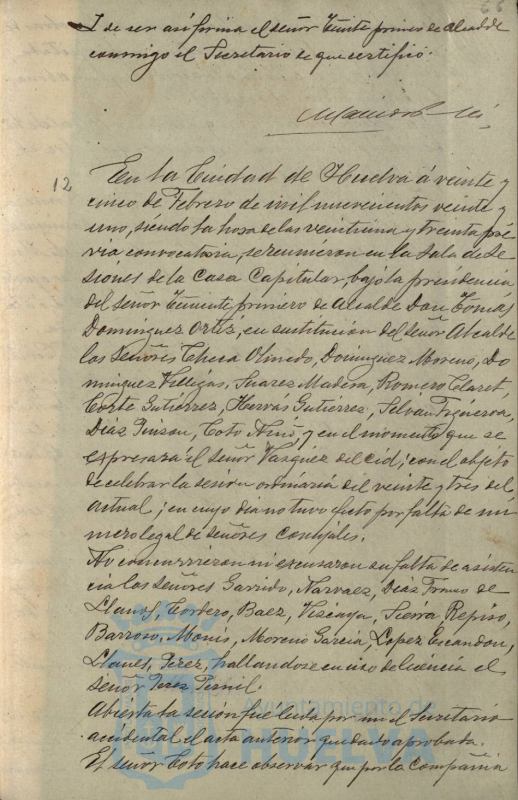 Y de ser así firma el señor Teniente primero de Alcalde
conmigo el Secretario de que certifico.
12
En la Ciudad de Huelva á veinte y
cinco de Febrero de mil nuevecientos veinte y
uno, siendo la hora de las veintiuna y treinta pré
via convocatoria, se reunieron en la Sala de Se
siones de la Casa Capitular, bajo la presidencia
del señor Teniente primero de Alcalde Don Tomás
Dominguez Ortiz, en sustitucion del señor Alcalde
los Señores Checa Olmedo, Dominguez Moreno, Do
minguez Villegas, Suarez Madesa, Romero Claret,
Corte Gutiérrez, Hervás Gutiérrez, Selván Figueroa,
Diaz Pinzon, Coto Niño, y en el momento que se
expresará el señor Vazquez del Cid; con el objeto
de celebrar la sesion ordinaria del veinte y tres del
actual; en cuyo dia no tuvo efecto por falta de nú
mero legal de señores Concejales.
No concurrieron ni excusaron su falta de asisten
cia los Señores Garrido, Narvaez, Diaz Franco de
Llanos, Cordero, Baez, Vizcaya, Sierra Repiso,
Barroso, Monis, Moreno Garcia, Lopez Escandon,
Llanes, Perez, hallandose en uso de licencia el
señor Perez Pernil.
Abierta la sesion fué leida por mi el Secretario
accidental el acta anterior quedando aprobada.
El señor Coto hace observar que por la Compañia
Ayuntamiento de
HUELVA